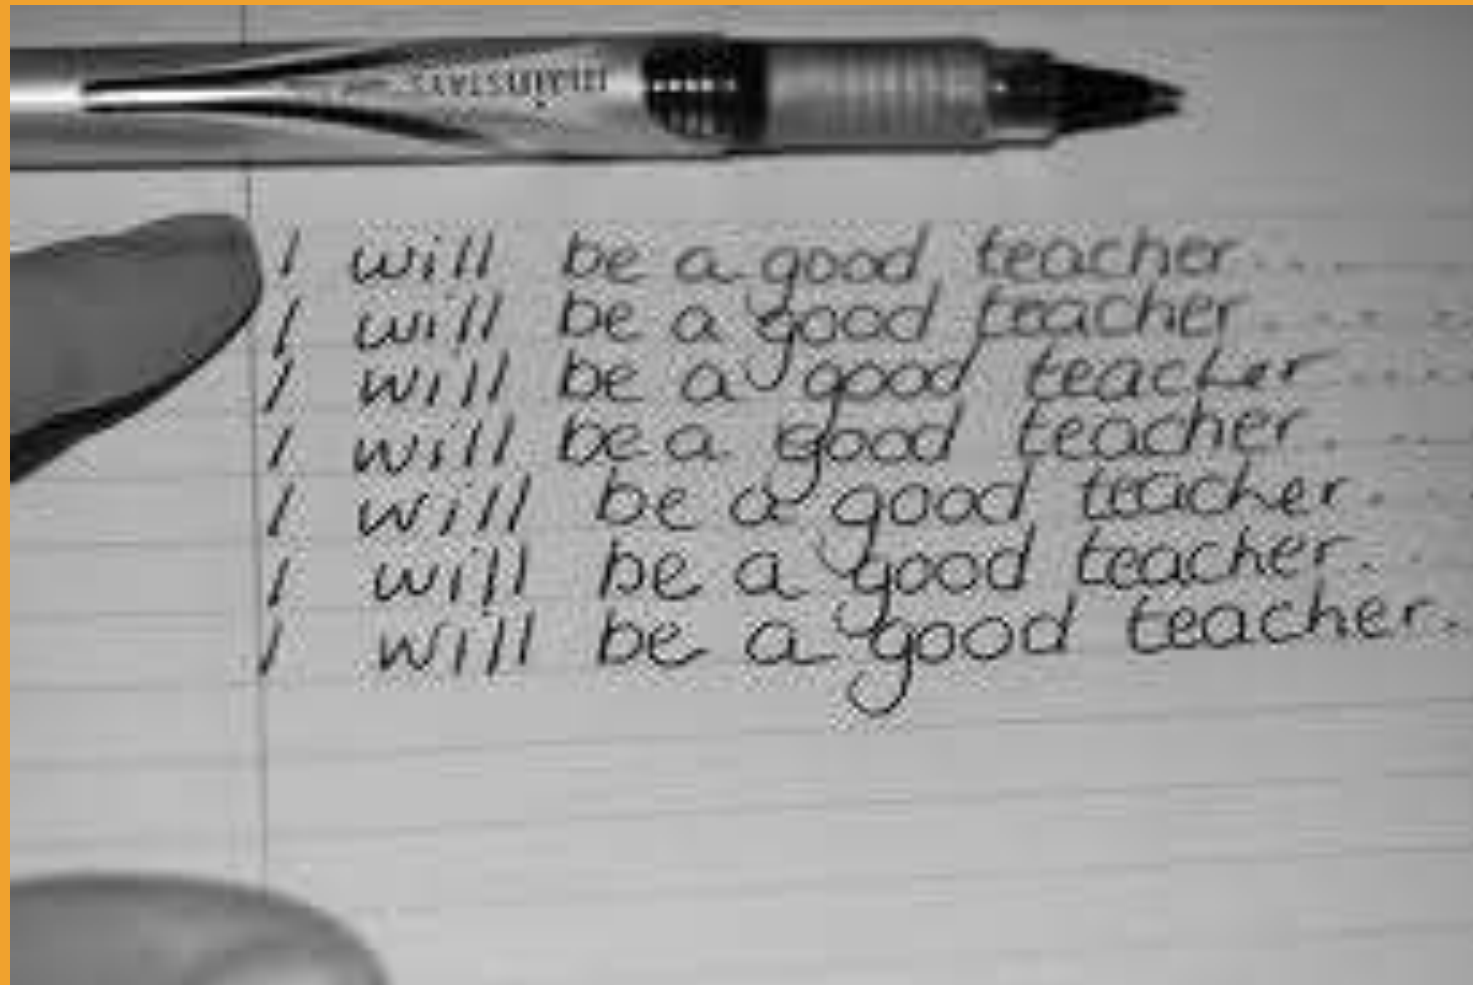 I will be a good teacher....
I will be a good teacher.....
I will be a good teacher....
I will be a good teacher...
I will be a good teacher..
I will be a good teacher..
I will be a good teacher.